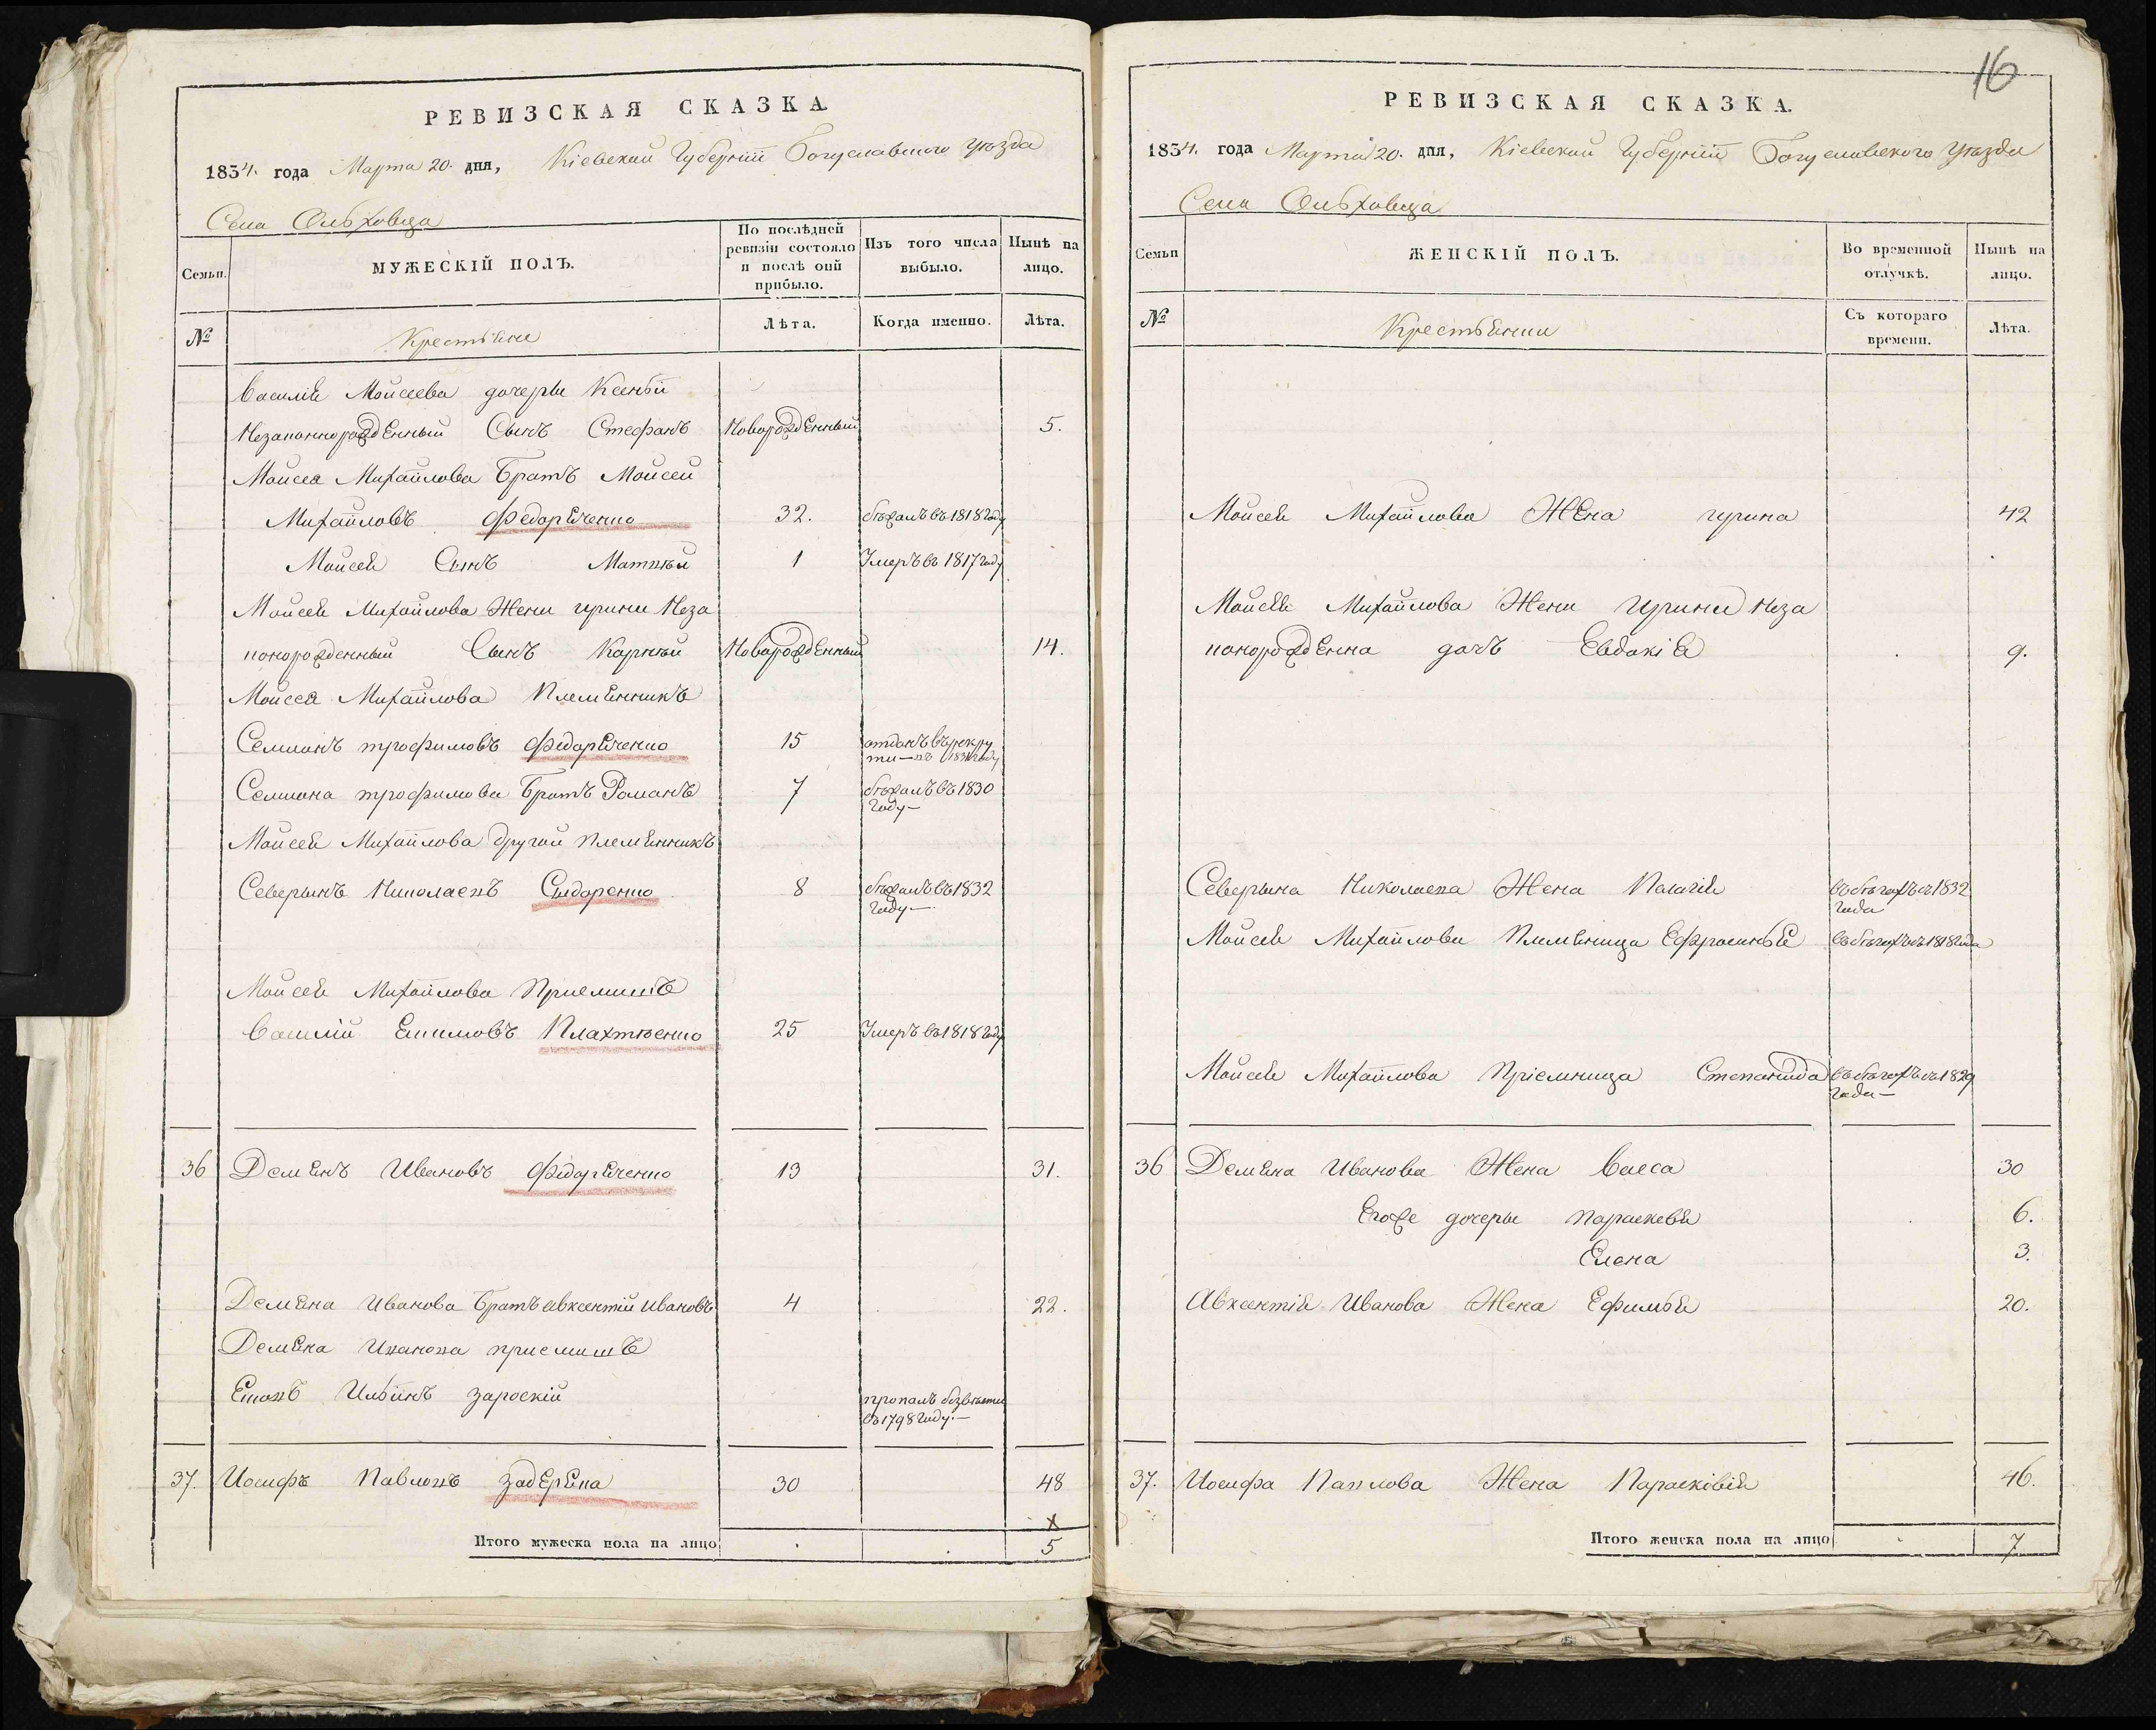 РЕВИЗСКАЯ СКАЗКА
1834. года Марта 20. дня, Кіевской Губерніи Богуславского уезда
Села Ольховца
Семьи.
МУЖЕСКІЙ ПОЛЪ.
По послѣдней ревизіи состояло и послѣ оной прибыло.
Изъ того числа выбыло.
Нынѣ на лицо.
№
Крестьяне
Лѣта.
Когда именно.
Лѣта.
Василія Моисеева дочеры Ксеніи
Незаконнорожденный Сынъ Стефанъ Новорожденный 5.
Моисея Михайлова Братъ Моисей
Михайловъ Федорченко 32. бѣжалъ въ 1818 году
Моисея Сынъ Матвѣй 1 Умеръ въ 1817 году
Моисея Михайлова Жены Ирины Неза
конорожденный Сынъ Корнѣй Новорожденный 14.
Моисея Михайлова Племянникъ
Семионъ трофимовъ Федорченко 15 отданъ въ рекру
ты въ 1831 году
Семиона трофимова Братъ Романъ 7 бѣжалъ въ 1830
году
Моисея Михайлова другой племянникъ
Северынъ Николаевъ Сыдоренко 8 бѣжалъ въ 1832
году
Моисея Михайлова Приемышъ
Василій Екимовъ Плахтѣенко 25 Умеръ въ 1818 году
36 Демянъ Ивановъ Федорченко 13 31.
Демяна Иванова Братъ Авксентій Ивановъ 4 22.
Демяна Иванова приемышъ
Ильинъ пропалъ безвѣсти
въ 1798 году
37. Иосифъ Павловъ задерека 30 48
х
Итого мужеска пола на лицо 5
16
РЕВИЗСКАЯ СКАЗКА.
1834. года Марта 20. дня, Кіевской Губерніи Богуславского уезда
Села Ольховца
Семьи
ЖЕНСКІЙ ПОЛЪ.
Во временной отлучкѣ.
Нынѣ на лицо.
№
Крестьянки
Съ котораго времени.
Лѣта.
Моисея Михайлова Жена Ирина 42
Моисея Михайлова Жены Ирины Неза
конорожденна дочь Евдокія 9.
Северына Николаева Жена Палагія въ бѣгахъ съ 1832
года
Моисея Михайлова Племяница Ефросинья въ бѣгахъ съ 1818 года
Моисея Михайлова Пріемница Степанида въ бѣгахъ съ 1829
года
36 Демяна Иванова Жена Васса 30
Егоже дочеры Параскевія 6.
Елена 3.
Авксентія Иванова Жена Ефимья 20.
37. Иосифа Павлова Жена Парасківія 46.
Итого женска пола на лицо 7